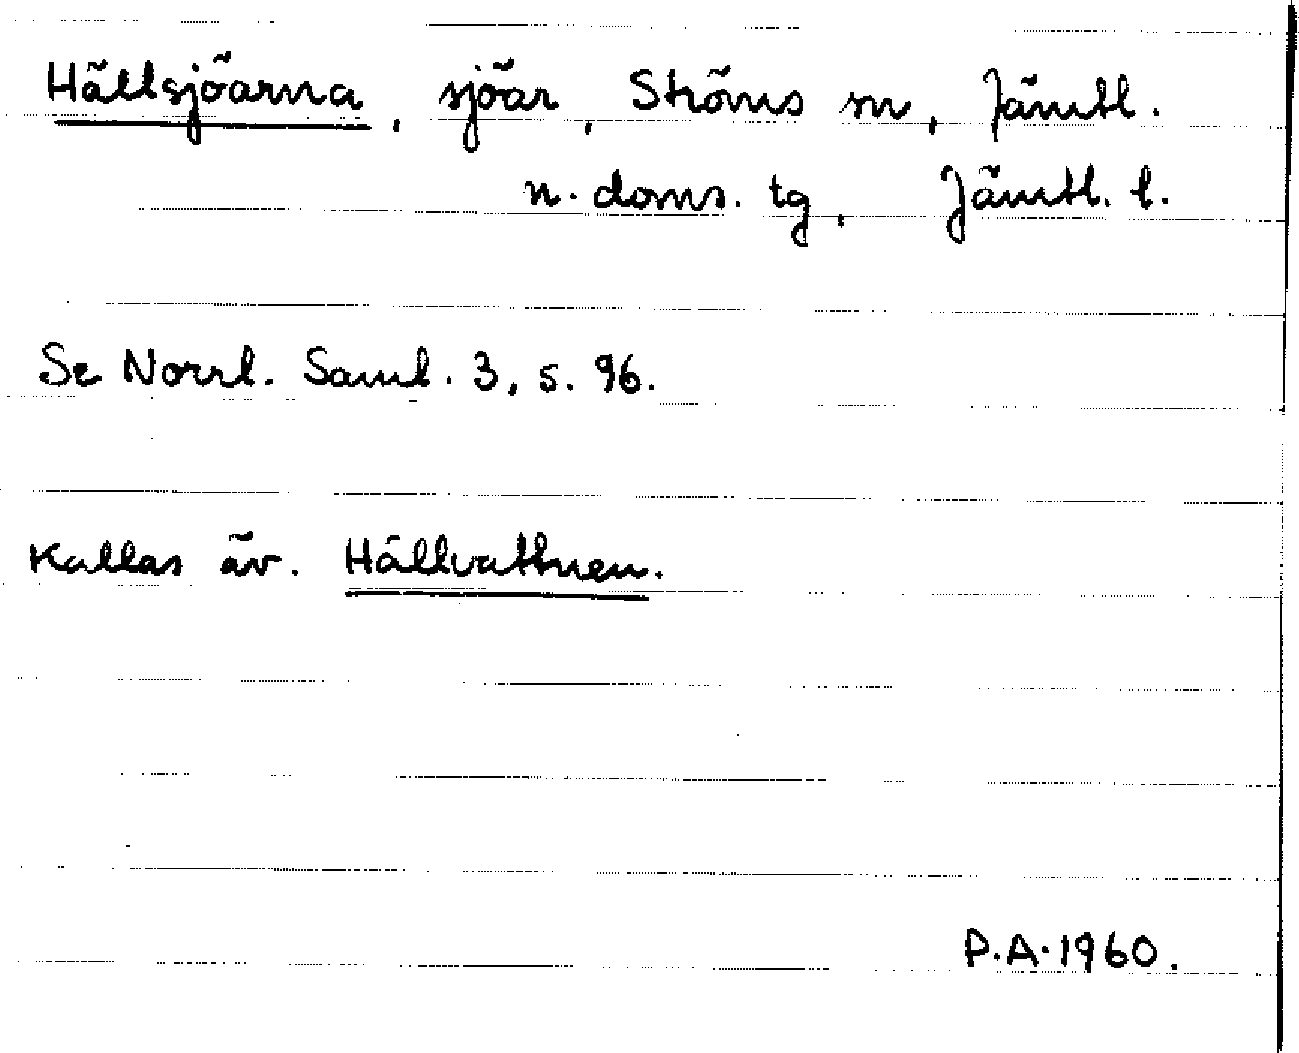 Hällsjöarna, sjöar, Ströms sn, Jämtl.
n. doms. tg, Jämtl. l.
Se Norrl. Saml. 3, s. 96.
Kallas äv. Hällvattnen.
P.A. 1960.